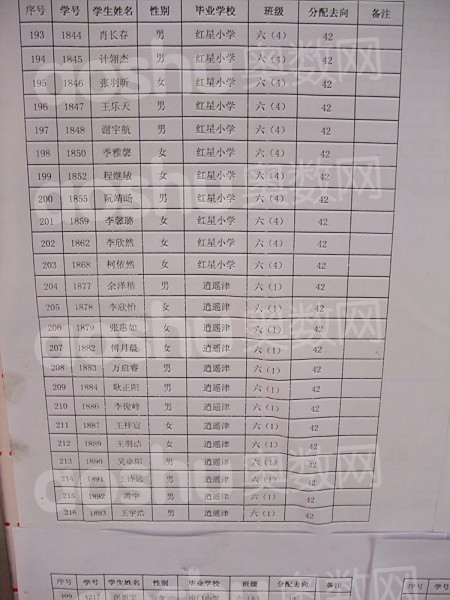 序号 学号 学生姓名 性别 毕业学校 班级 分配去向 备注
193 1844 肖长春 男 红星小学 六（4） 42
194 1845 计翎杰 男 红星小学 六（4） 42
195 1846 张羽昕 女 红星小学 六（4） 42
196 1847 王乐天 男 红星小学 六（4） 42
197 1848 谢宇航 男 红星小学 六（4） 42
198 1850 季雅馨 女 红星小学 六（4） 42
199 1852 程继敏 女 红星小学 六（4） 42
200 1855 阮靖旸 男 红星小学 六（4） 42
201 1859 李馨璐 女 红星小学 六（4） 42
202 1862 李欣然 女 红星小学 六（4） 42
203 1868 柯依然 女 红星小学 六（4） 42
204 1877 余泽楷 男 逍遥津 六（1） 42
205 1878 李欣怡 女 逍遥津 六（1） 42
206 1879 张惠如 女 逍遥津 六（1） 42
207 1882 傅月晨 女 逍遥津 六（1） 42
208 1883 万启睿 男 逍遥津 六（1） 42
209 1884 耿正阳 男 逍遥津 六（1） 42
210 1886 李俊峰 男 逍遥津 六（1） 42
211 1887 王梓宸 女 逍遥津 六（1） 42
212 1889 王羽洁 女 逍遥津 六（1） 42
213 1890 男 逍遥津 六（1） 42
214 1891 男 逍遥津 六（1） 42
215 1892 男 逍遥津 六（1） 42
216 1893 王宇浩 男 逍遥津 六（1） 42
序号 学号 学生姓名 性别 毕业学校 班级 分配去向 备注
409 4217
aoshu 奥数网